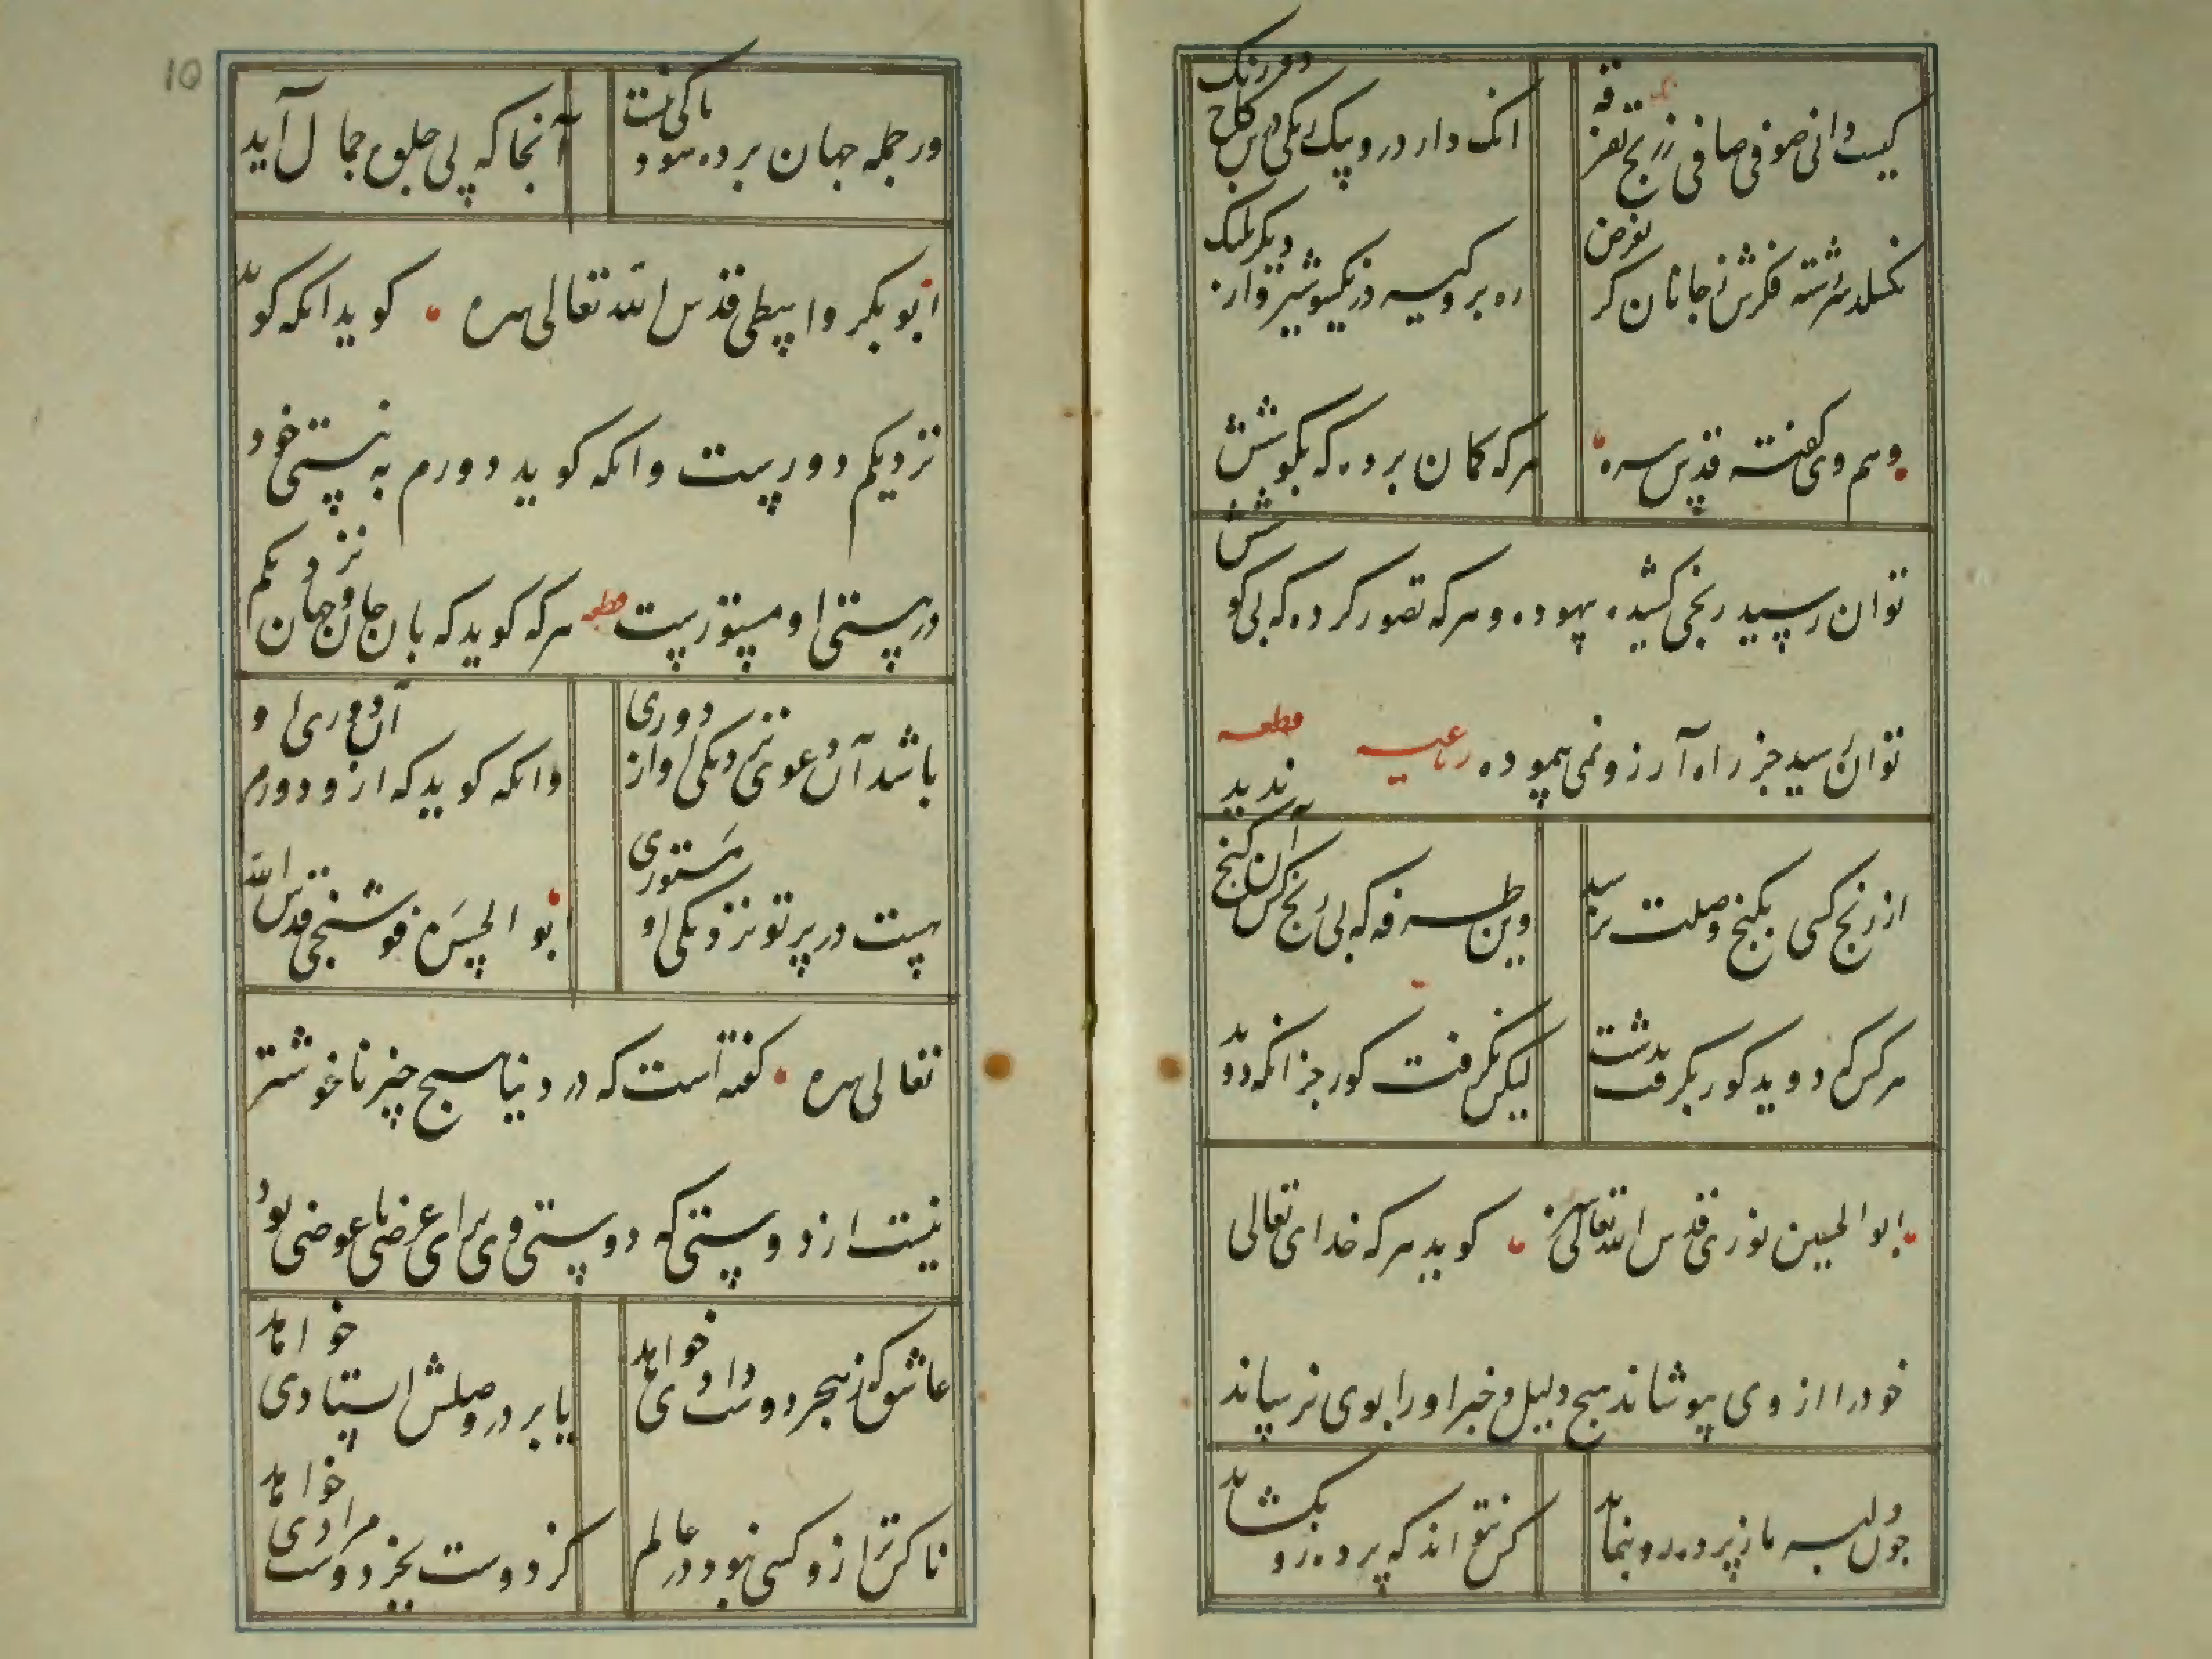 کیست دانی صوفی صافی ز رنج تفرقه
انک دارد رو بیک رنکی درین کاخ دو رنک
نکسلد سررشته فکرش ز جانان کر بفرض
ره برو کیرد ز یکسو شیر و از دیکر پلنک
وهم وی کفته قدس سره
هرکه کمان برد که بکوشش
توان رسید رنجی کشید بیهوده و هرکه تصور کرده که بی کوشش
توان رسید جز راه آرزو نمی پیموده رباعیه قطعه
از رنج کسی بکنج وصلت نرسید
وین طرفه که بی رنج کس آن کنج ندید
هر کس که دوید کور نکرفت بدشت
لیکن نکرفت کور جز انکه دوید
ابوالحسین نوری قدس الله تعالی سره کوید هرکه خدای تعالی
خود را از وی بپوشاند هیچ دلیل و خبر او را بوی نرساند
چون دلبر ما ز پرده رو ننماید
کس نتواند که پرده زو بکشاید
10
ور جمله جهان پرده شود باکی نیست
آنجا که پی جلوه جمال آید
ابو بکر واسطی قدس الله تعالی سره کوید انکه کوید
نزدیکم دورست وانکه کوید دورم به نیستی خود
در هستی او مستورست قطعه هرکه کوید که بان جان و جهان نزدیکم
باشد آن دعوی نزدیکی او از دوری
وانکه کوید که ازو دورم آن دوری او
هست در پرتو نزدیکی او مستوری
ابو الحسن فوشنجی قدس الله
تعالی سره کفته است که در دنیا هیچ چیز ناخوشتر
نیست از دوستی که دوستی وی برای عرضی یا عوضی بود
عاشق که ز هجر دوست دادی خواهد
یا بر در وصلش ایستادی خواهد
ناکس تر ازو کسی نبود در عالم
کز دوست بجز دوست مرادی خواهد